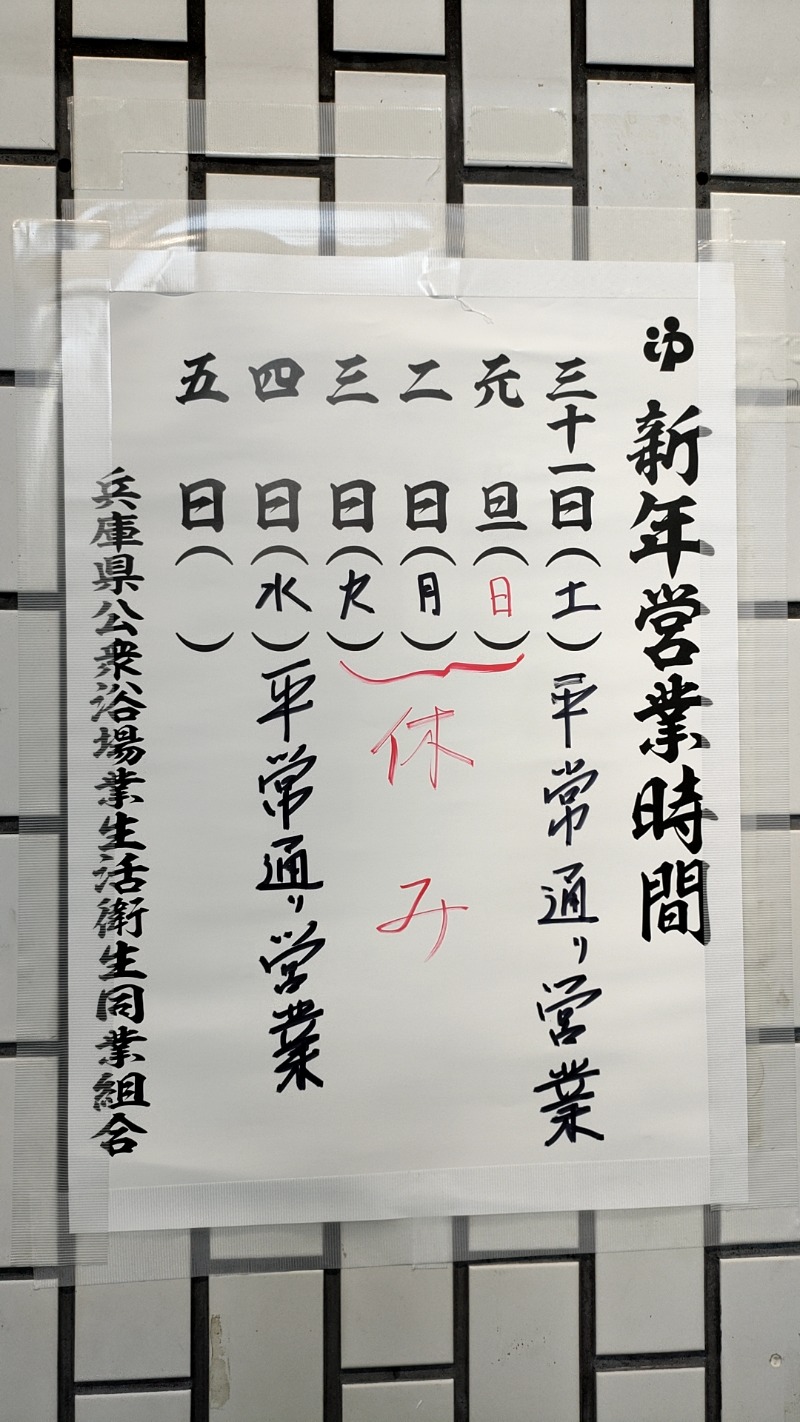 ゆ 新年営業時間
三十一日(土)平常通り営業
元旦(日)
二日(月)
三日(火)
休み
四日(水)平常通り営業
五日( )
兵庫県公衆浴場業生活衛生同業組合